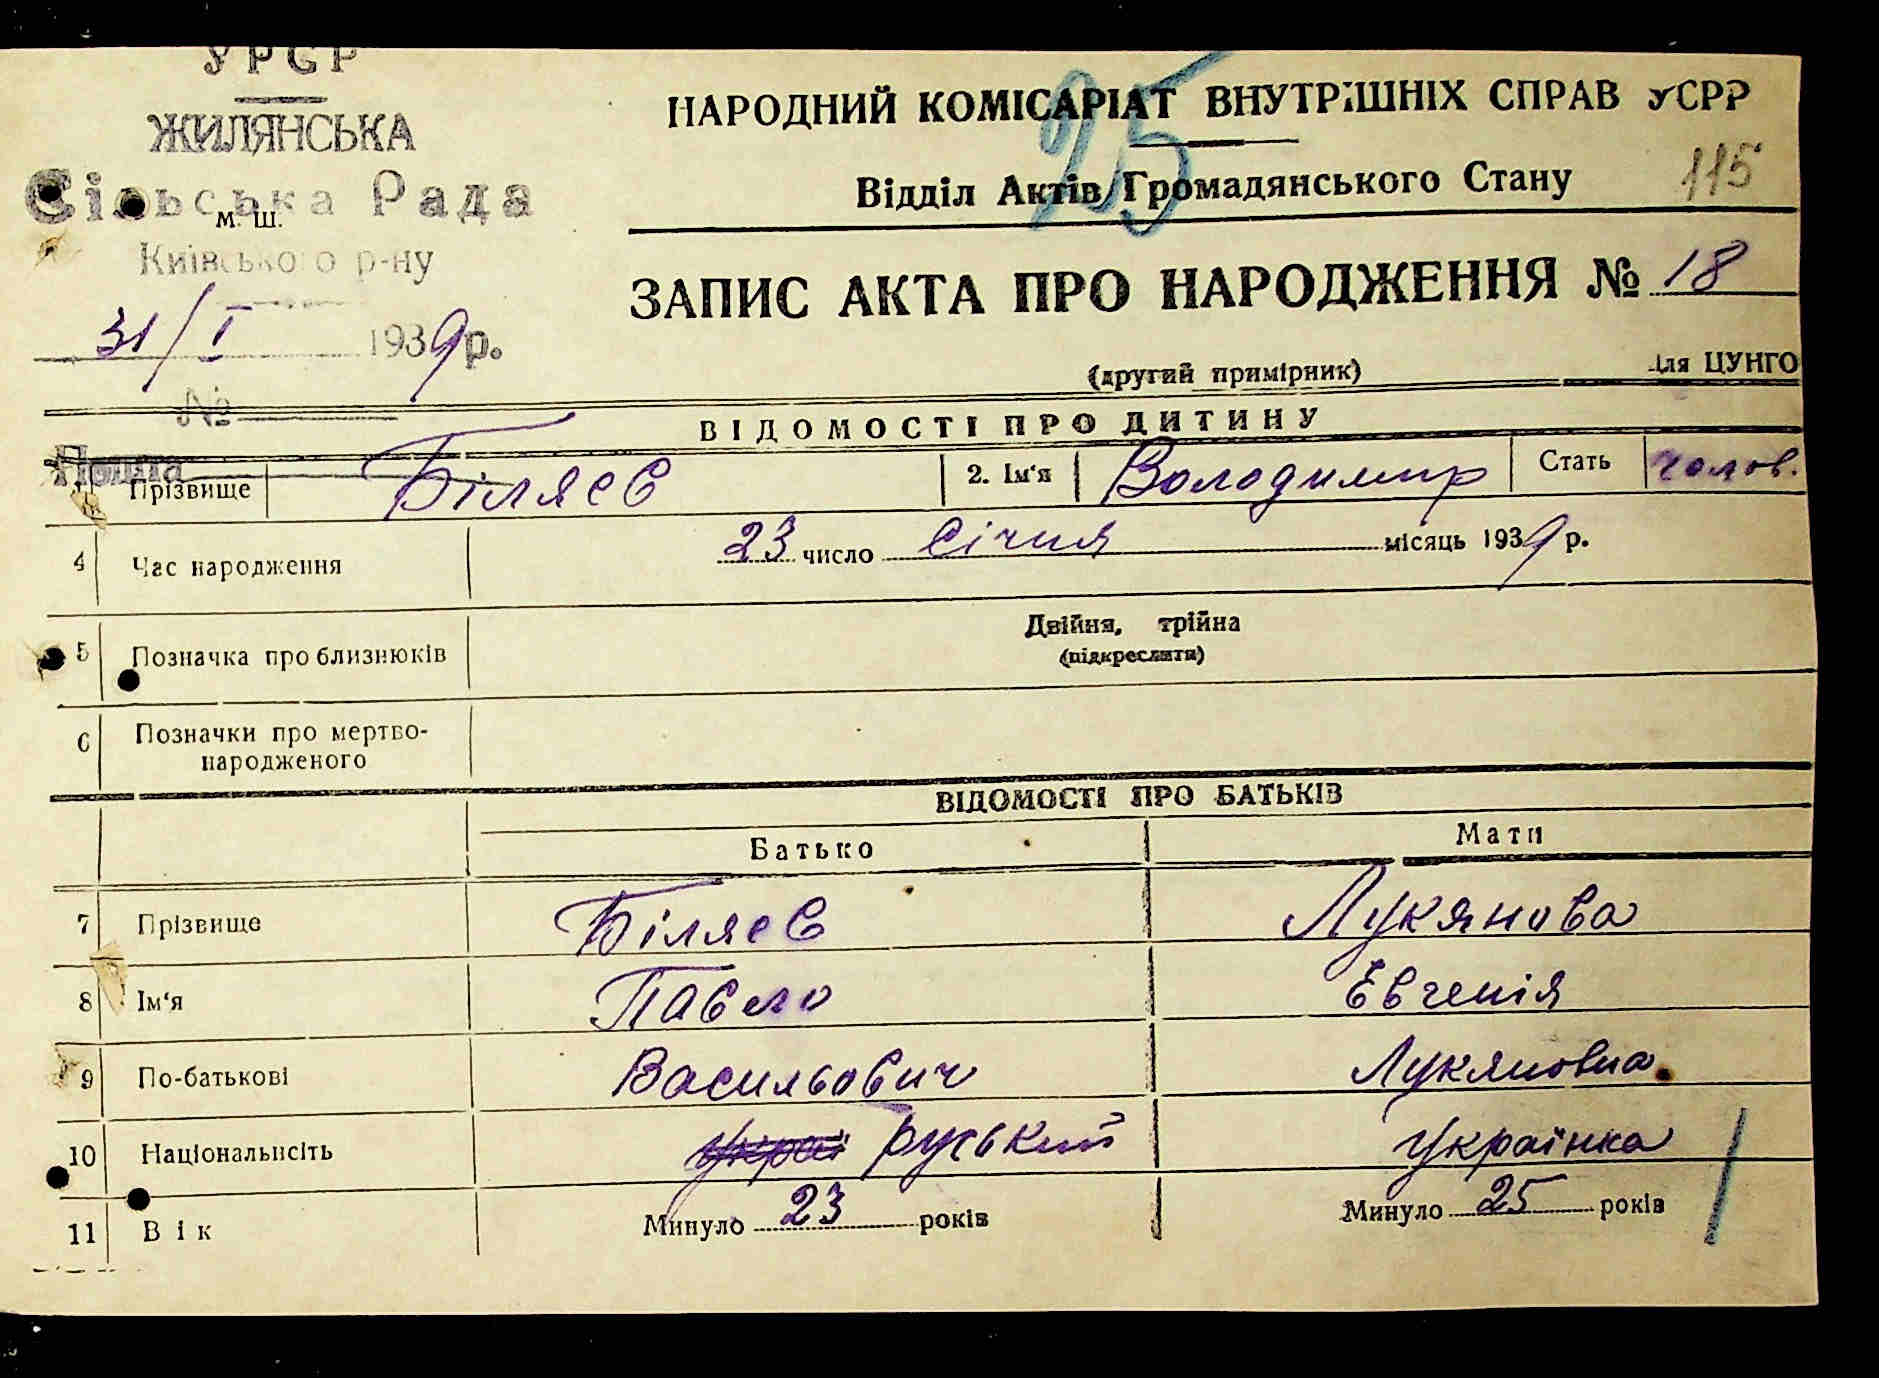 УРСР
ЖИЛЯНСЬКА
Сільська Рада
м. ш.
Київського р-ну
31/I 1939 р.
№
Пошта
НАРОДНИЙ КОМІСАРІАТ ВНУТРІШНІХ СПРАВ УСРР
25
115
Відділ Актів Громадянського Стану
ЗАПИС АКТА ПРО НАРОДЖЕННЯ № 18
(другий примірник) Для ЦУНГО
ВІДОМОСТІ ПРО ДИТИНУ
1 Прізвище Біляєв 2. Ім'я Володимир Стать чолов.
4 Час народження 23 число Січня місяць 1939 р.
5 Позначка про близнюків Двійня, трійна
(підкреслити)
6 Позначки про мертво-
народженого
ВІДОМОСТІ ПРО БАТЬКІВ
Батько Мати
7 Прізвище Біляєв Лукянова
8 Ім'я Павело Евгенія
9 По-батькові Васильович Лукяновна
10 Національність Украї руський українка
11 Вік Минуло 23 років Минуло 25 років